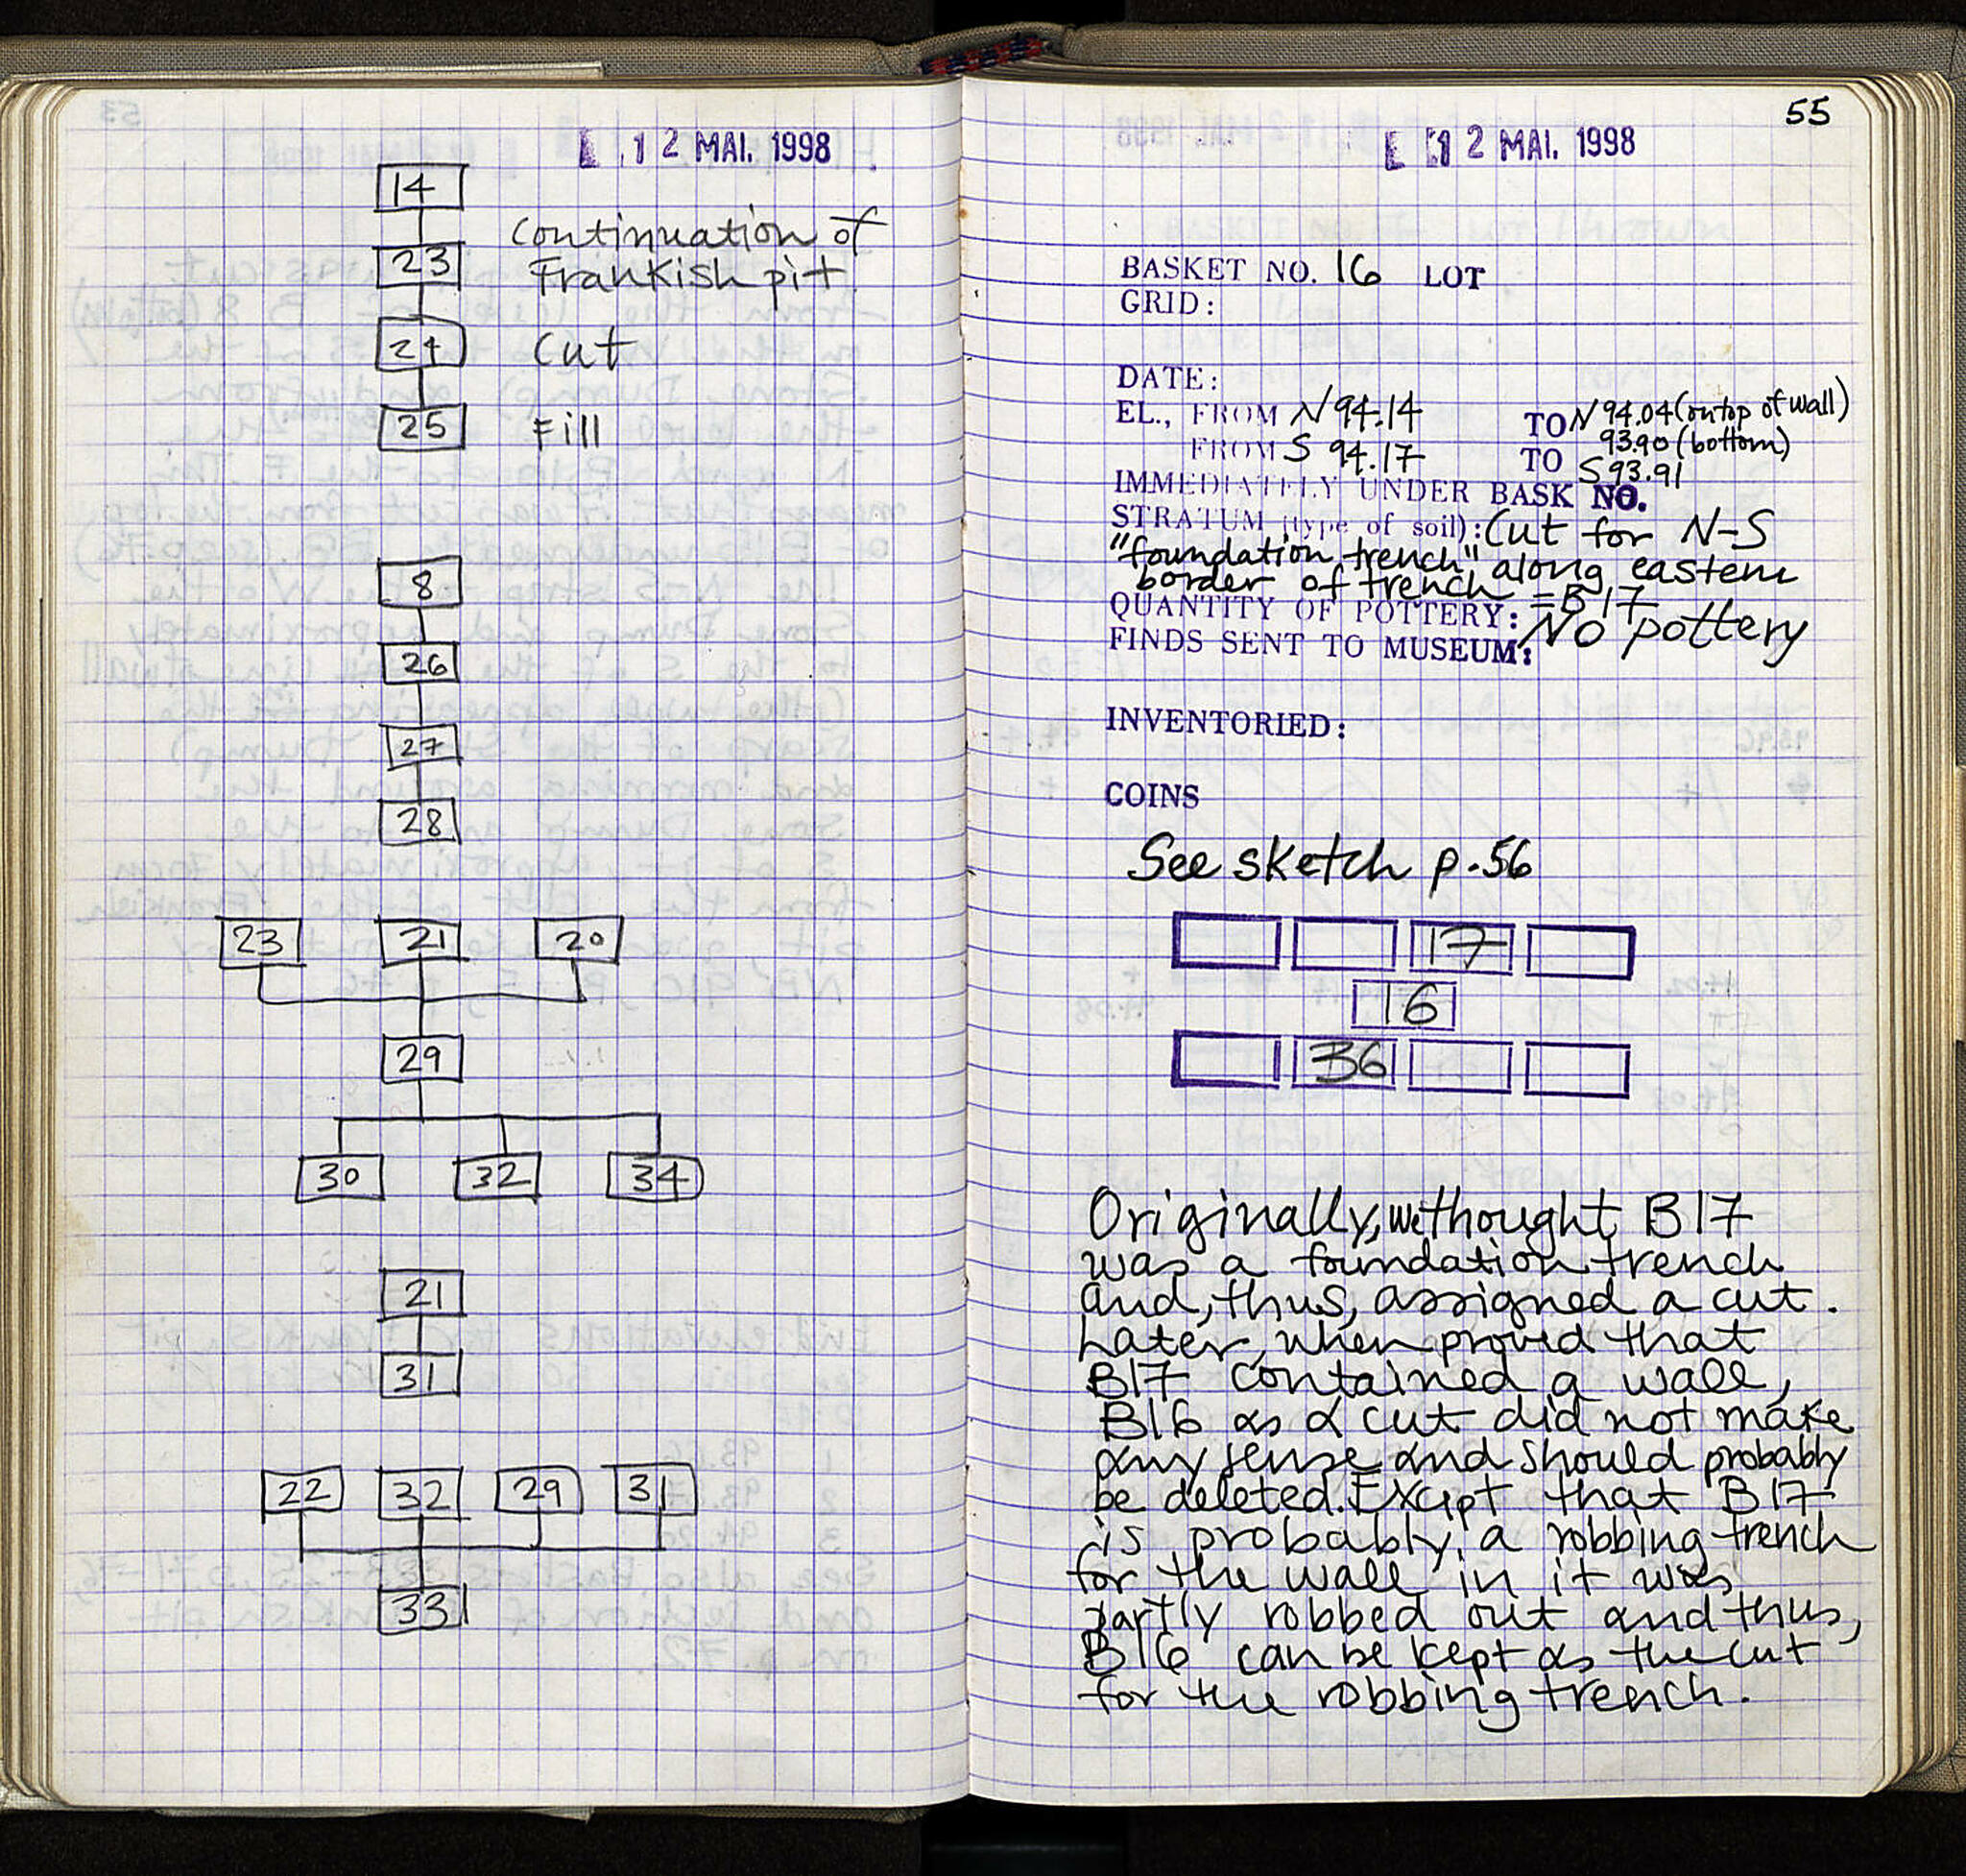 12 MAI. 1998
14
23
continuation of
Frankish pit
24
Cut
25
Fill
8
26
27
28
23 21 20
29
30 32 34
21
31
22 32 29 31
33
55
12 MAI. 1998
BASKET NO. 16 LOT
GRID:
DATE:
EL., FROM N 94.14 TO N 94.04 (on top of wall)
93.90 (bottom)
FROM S 94.17 TO S 93.91
IMMEDIATELY UNDER BASK NO.
STRATUM (type of soil): Cut for N-S
"foundation trench" along eastern
border of trench = B17
QUANTITY OF POTTERY:
No pottery
FINDS SENT TO MUSEUM:
INVENTORIED:
COINS
See sketch p.56
17
16
36
Originally, we thought B17
was a foundation trench
and, thus, assigned a cut.
Later, when proved that
B17 contained a wall,
B16 as a cut did not make
any sense and should probably
be deleted. Except that B17
is probably a robbing trench
for the wall in it was
partly robbed out and thus,
B16 can be kept as the cut
for the robbing trench.